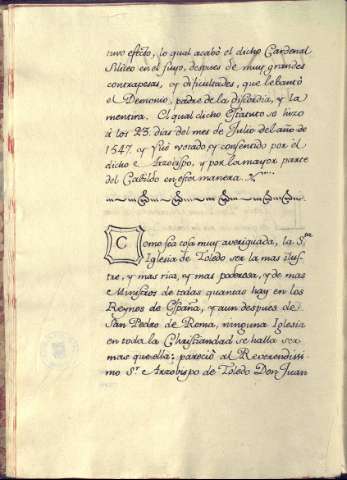 tuvo efecto, lo qual acabó el dicho Cardenal
Siliceo en el suyo, despues de muy grandes
contrapesas, y dificultades, que lebantó
el Demonio, padre de la discordia, y la
mentira. El qual dicho Estatuto se hizo
á los 23. dias del mes de Julio del año de
1547. y fue votado, y consentido por el
dicho Arzobispo, y por la mayor parte
del Cabildo en esta manera.
Como sea cosa muy averiguada, la S.ta
Iglesia de Toledo ser la mas ilus-
tre, y mas rica, y mas poderosa, y de mas
Ministros de todas quantas hay en los
Reynos de España, y aun despues de
San Pedro de Roma, ninguna Iglesia
en toda la Christiandad se halla ser
mas que ella: pareció al Reverendissi-
mo S.r Arzobispo de Toledo Don Juan